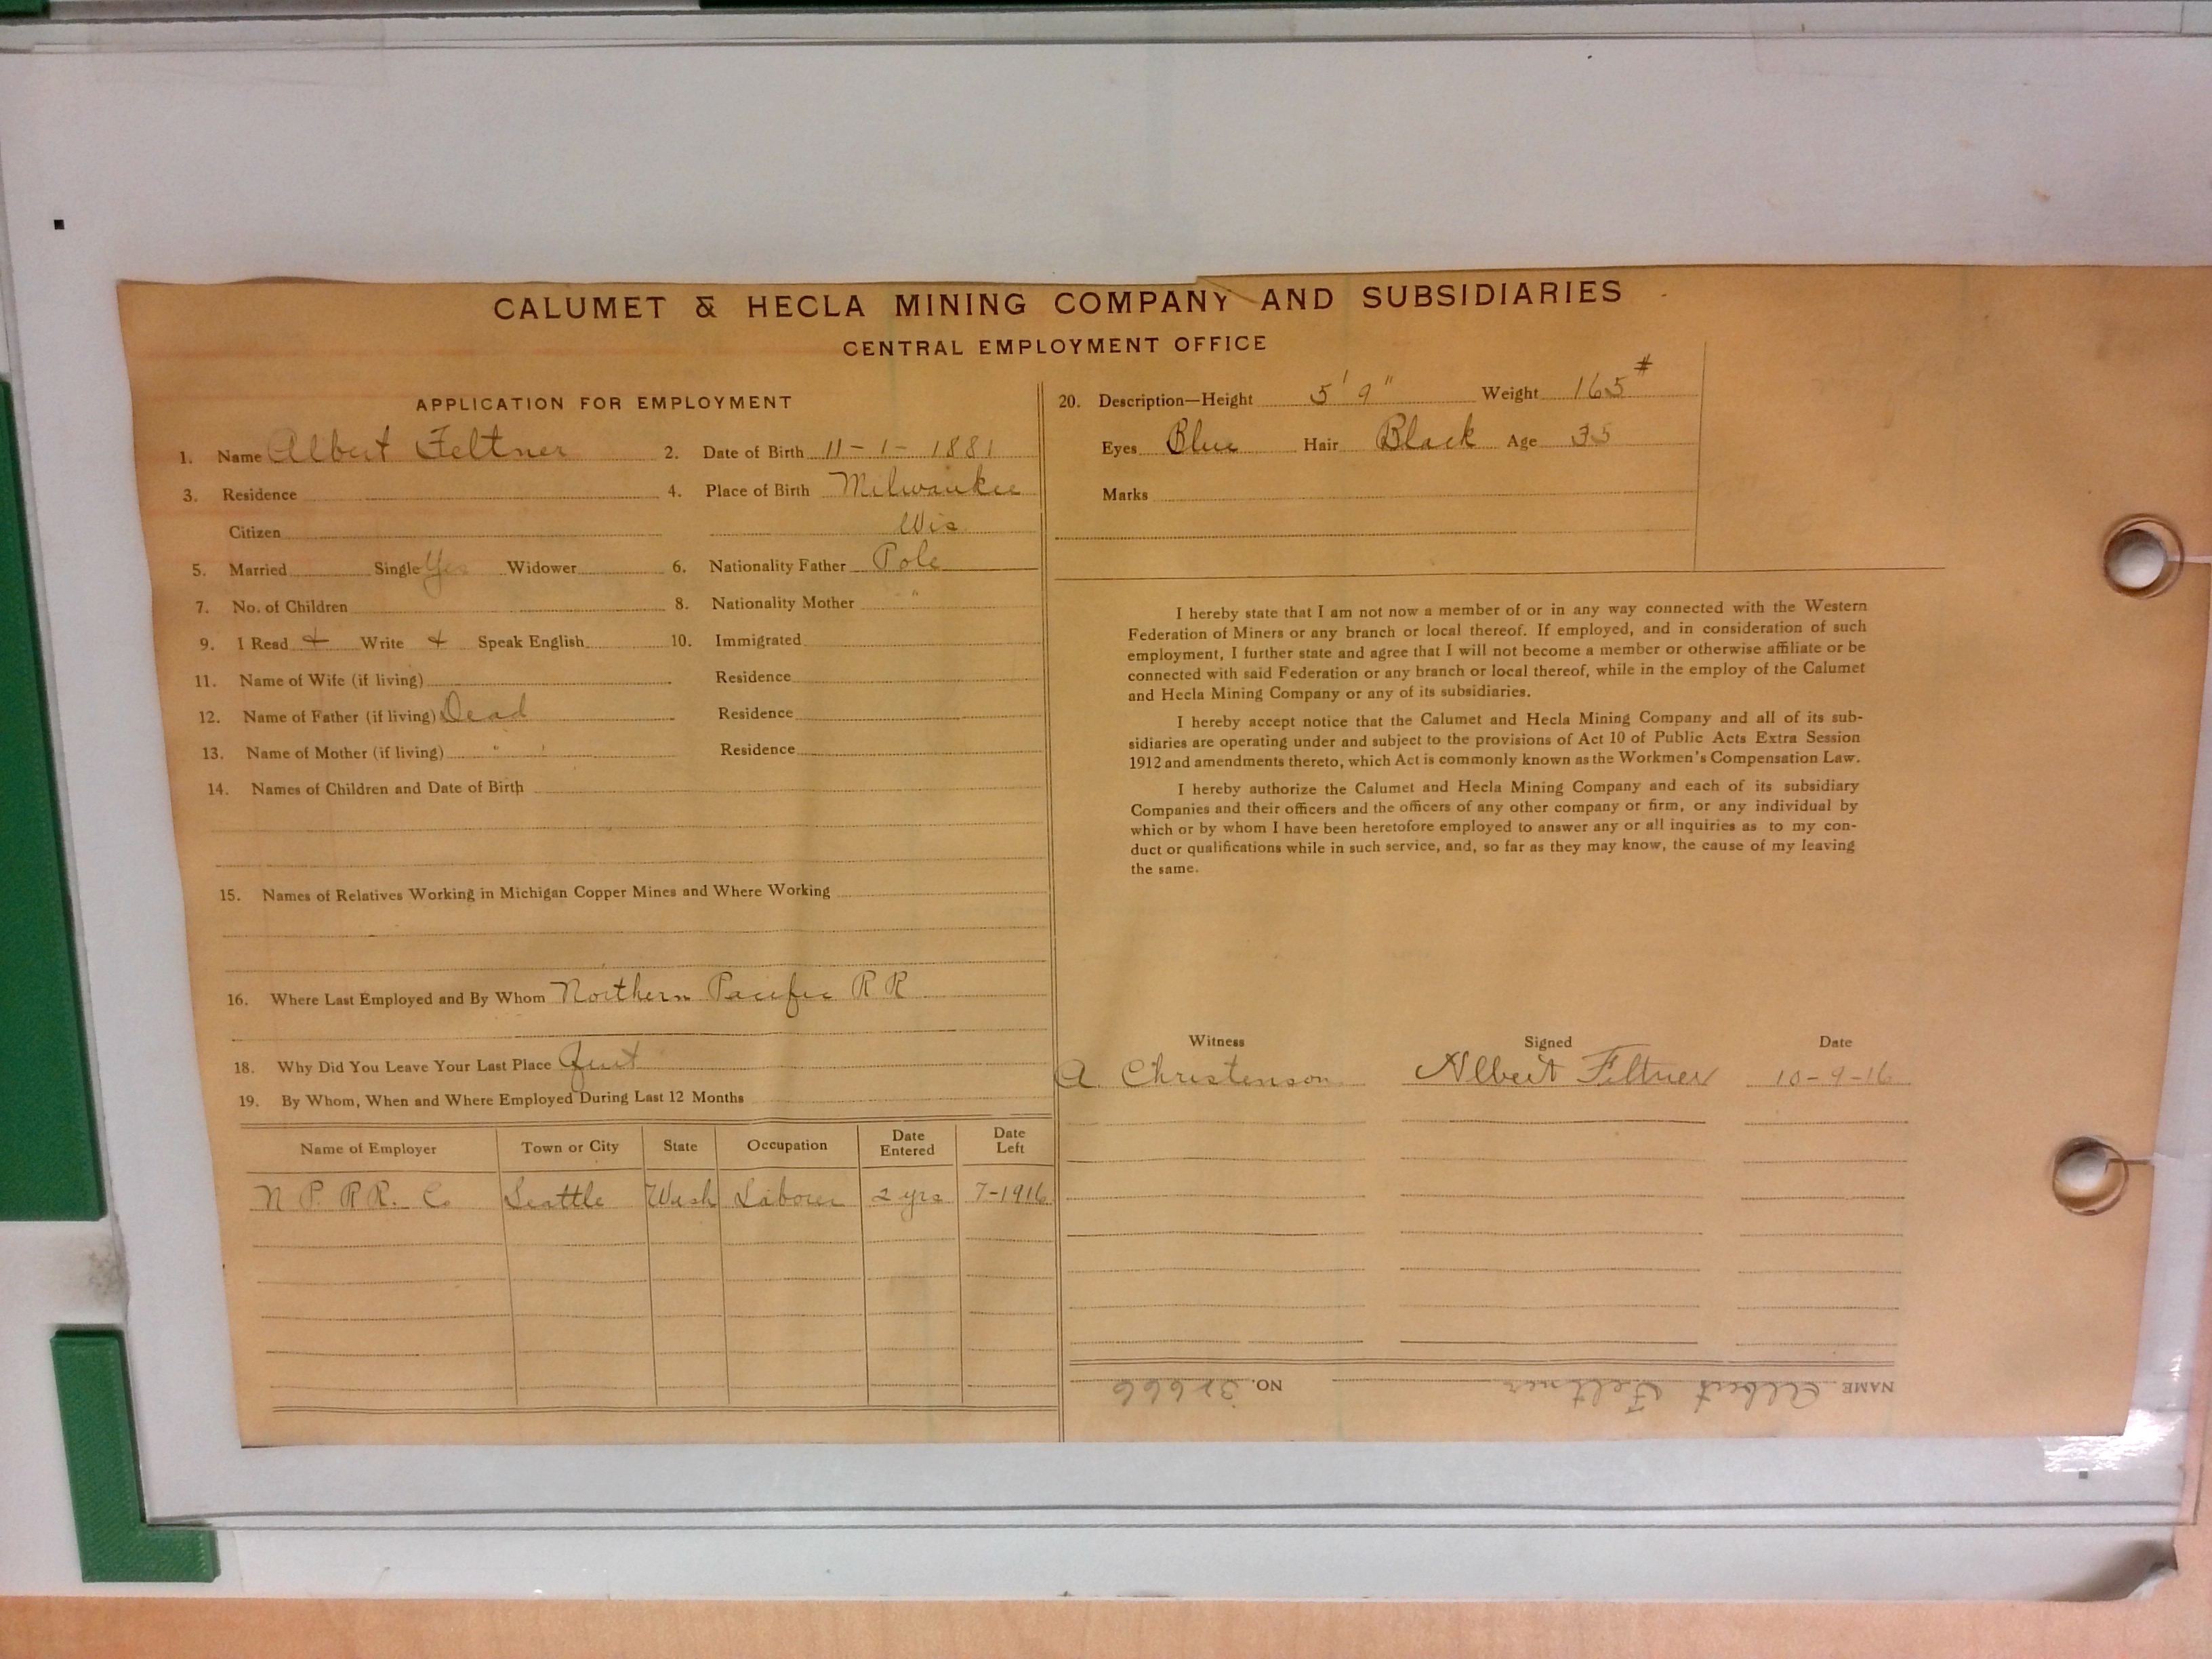 CALUMET & HECLA MINING COMPANY AND SUBSIDIARIES
CENTRAL EMPLOYMENT OFFICE
APPLICATION FOR EMPLOYMENT
1. Name Albert Feltner 2. Date of Birth 11-1-1881
3. Residence 4. Place of Birth Milwaukee
Citizen Wis
5. Married Single Yes Widower 6. Nationality Father Pole
7. No. of Children 8. Nationality Mother "
9. I Read + Write + Speak English 10. Immigrated
11. Name of Wife (if living) Residence
12. Name of Father (if living) Dead Residence
13. Name of Mother (if living) " Residence
14. Names of Children and Date of Birth
15. Names of Relatives Working in Michigan Copper Mines and Where Working
16. Where Last Employed and By Whom Northern Pacific R R
18. Why Did You Leave Your Last Place Quit
19. By Whom, When and Where Employed During Last 12 Months
Name of Employer Town or City State Occupation Date Entered Date Left
N P. RR. Co Seattle Wash Laborer 2 yrs 7-1916
20. Description—Height 5' 9" Weight 165#
Eyes Blue Hair Black Age 35
Marks
I hereby state that I am not now a member of or in any way connected with the Western
Federation of Miners or any branch or local thereof. If employed, and in consideration of such
employment, I further state and agree that I will not become a member or otherwise affiliate or be
connected with said Federation or any branch or local thereof, while in the employ of the Calumet
and Hecla Mining Company or any of its subsidiaries.
I hereby accept notice that the Calumet and Hecla Mining Company and all of its sub-
sidiaries are operating under and subject to the provisions of Act 10 of Public Acts Extra Session
1912 and amendments thereto, which Act is commonly known as the Workmen's Compensation Law.
I hereby authorize the Calumet and Hecla Mining Company and each of its subsidiary
Companies and their officers and the officers of any other company or firm, or any individual by
which or by whom I have been heretofore employed to answer any or all inquiries as to my con-
duct or qualifications while in such service, and, so far as they may know, the cause of my leaving
the same.
Witness Signed Date
A. Christenson Albert Feltner 10-9-16
NAME Albert Feltner NO. 32666